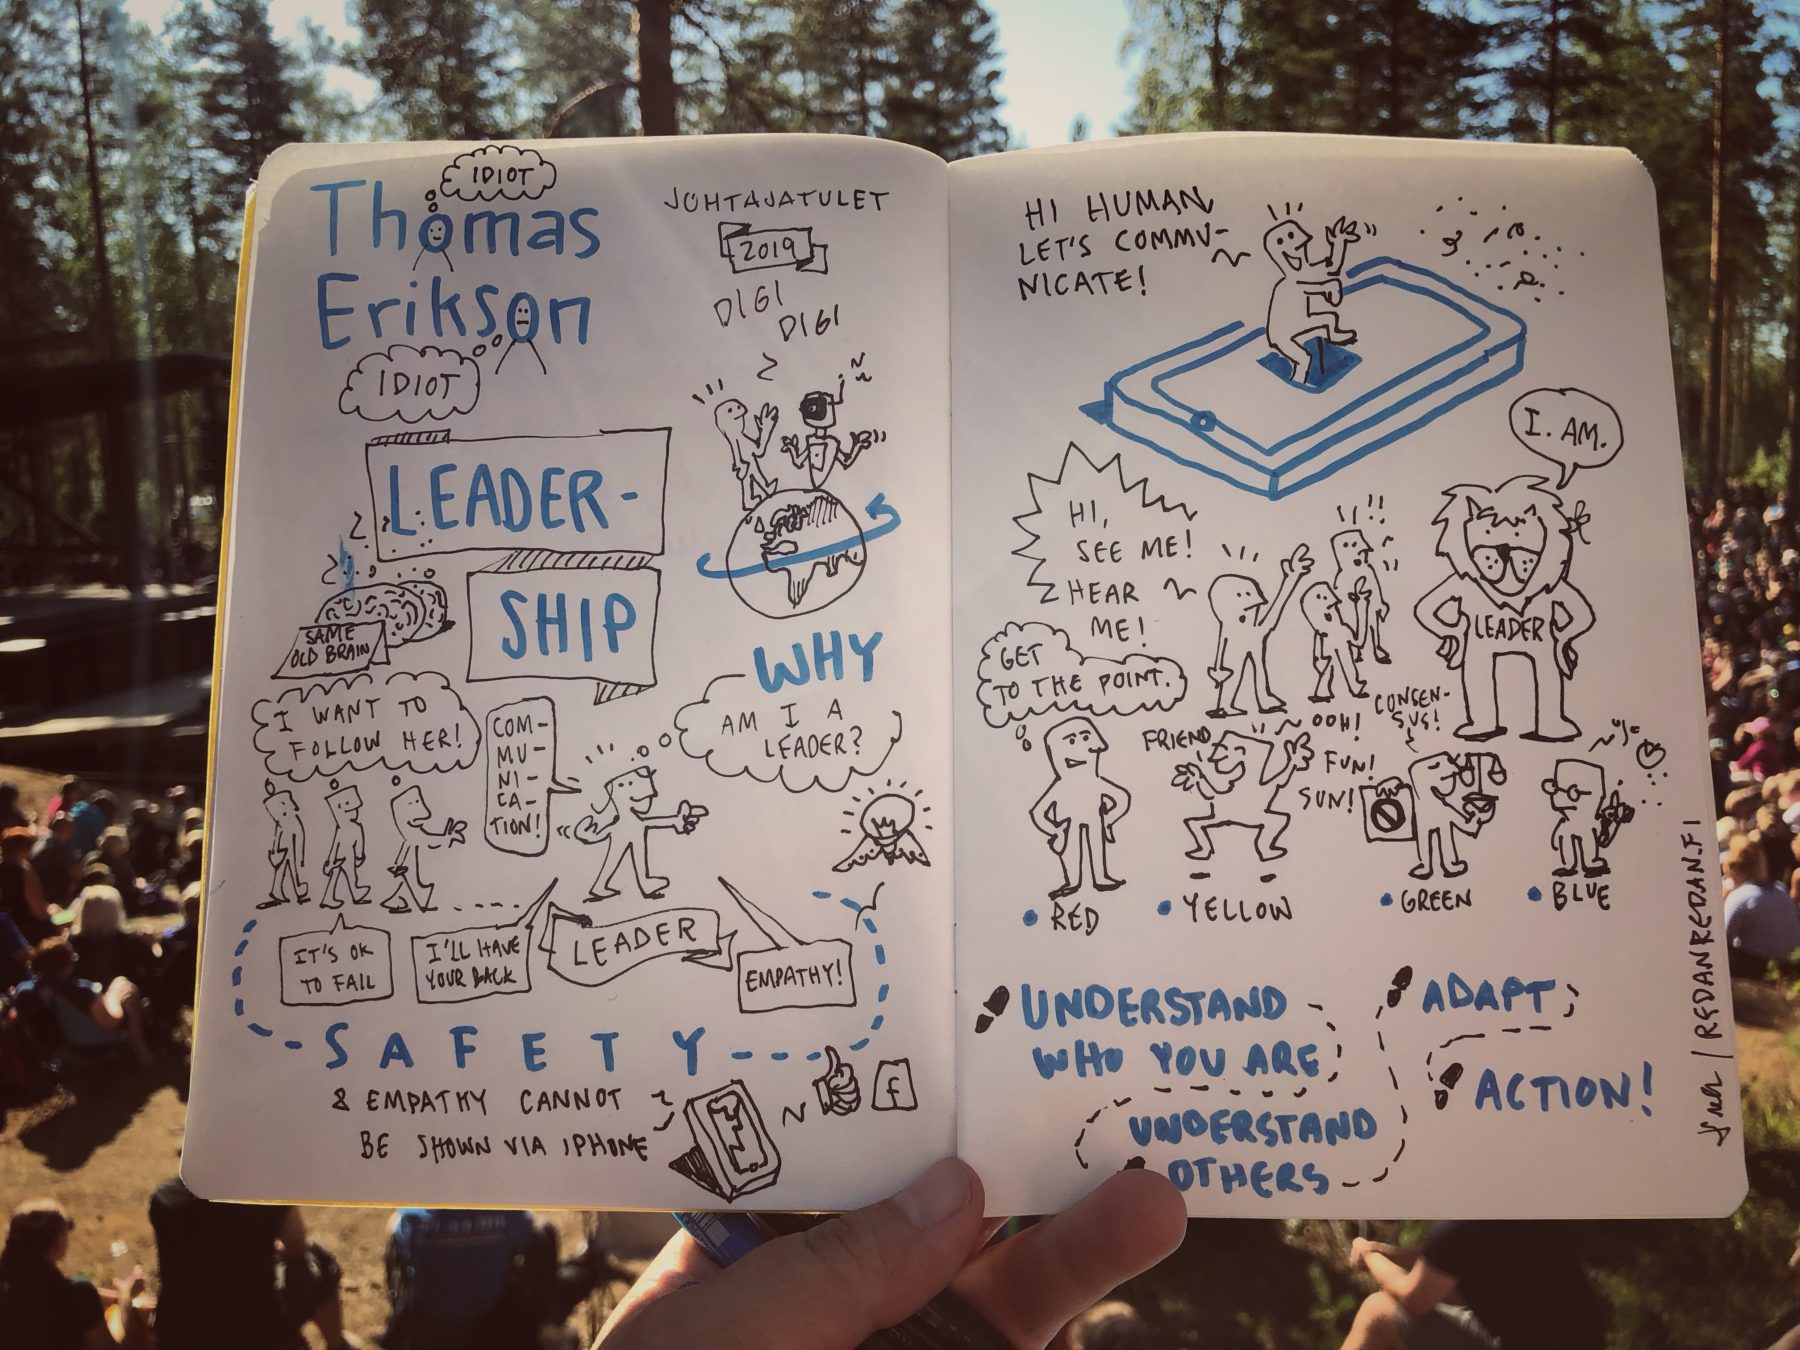 IDIOT
Thomas
Erikson
IDIOT
JOHTAJATULET
2019
DIGI
DIGI
LEADER-
SHIP
SAME
OLD BRAIN
WHY
AM I A
LEADER?
I WANT TO
FOLLOW HER!
COM-
MU-
NI-
CA-
TION!
IT'S OK
TO FAIL
I'LL HAVE
YOUR BACK
LEADER
EMPATHY!
SAFETY
& EMPATHY CANNOT
BE SHOWN VIA IPHONE
f
HI HUMAN
LET'S COMMU-
NICATE!
I. AM.
HI,
SEE ME!
HEAR
ME!
LEADER
GET
TO THE POINT.
FRIEND
OOH!
FUN!
SUN!
CONSEN-
SUS!
RED
YELLOW
GREEN
BLUE
UNDERSTAND
WHO YOU ARE
UNDERSTAND
OTHERS
ADAPT
ACTION!
/REDANREDAN.FI